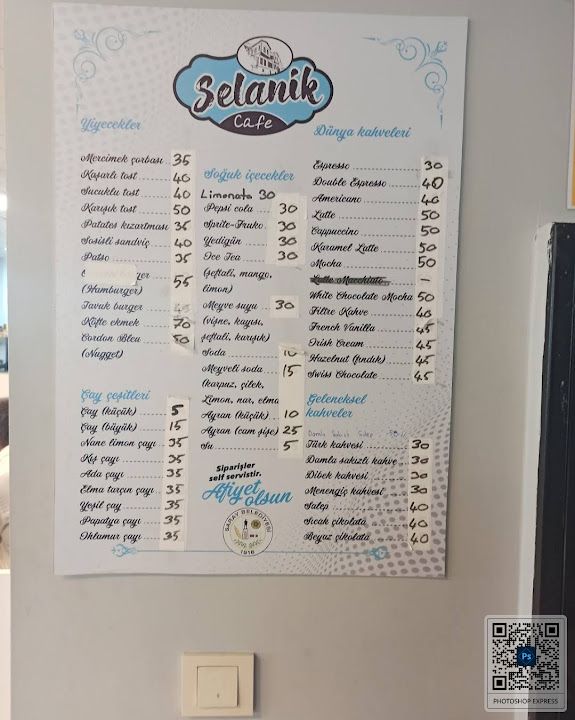 Selanik
Cafe
Yiyecekler
Mercimek çorbası 35
Kaşarlı tost 40
Sucuklu tost 40
Karışık tost 50
Patates kızartması 35
Sosisli sandviç 40
Patso 35
(Hamburger) 55
Tavuk burger
Köfte ekmek 70
Cordon Bleu 50
(Nugget)
Çay çeşitleri
Çay (küçük) 5
Çay (büyük) 15
Nane limon çayı 35
Kış çayı 35
Ada çayı 35
Elma tarçın çayı 35
Yeşil çay 35
Papatya çayı 35
Ihlamur çayı 35
Soğuk içecekler
Limonata 30
Pepsi cola 30
Sprite-Fruko 30
Yedigün 30
Ice Tea 30
(şeftali, mango,
limon)
Meyve suyu 30
(vişne, kayısı,
şeftali, karışık)
Soda 10
Meyveli soda 15
(karpuz, çilek,
Limon, nar, elma
Ayran (küçük) 10
Ayran (cam şişe) 25
Su 5
Siparişler
self servistir.
Afiyet
olsun
SARAY BELEDİYESİ
1916
Dünya kahveleri
Espresso 30
Double Espresso 40
Americano 40
Latte 50
Cappuccino 50
Karamel Latte 50
Mocha 50
Latte Macchiato -
White Chocolate Mocha 50
Filtre Kahve 40
French Vanilla 45
Irish Cream 45
Hazelnut (fındık) 45
Swiss Chocolate 45
Geleneksel
kahveler
Türk kahvesi 30
Damla sakızlı kahve 30
Dibek kahvesi 30
Menengiç kahvesi 30
Salep 40
Sıcak çikolata 40
Beyaz çikolata 40
Ps
PHOTOSHOP EXPRESS